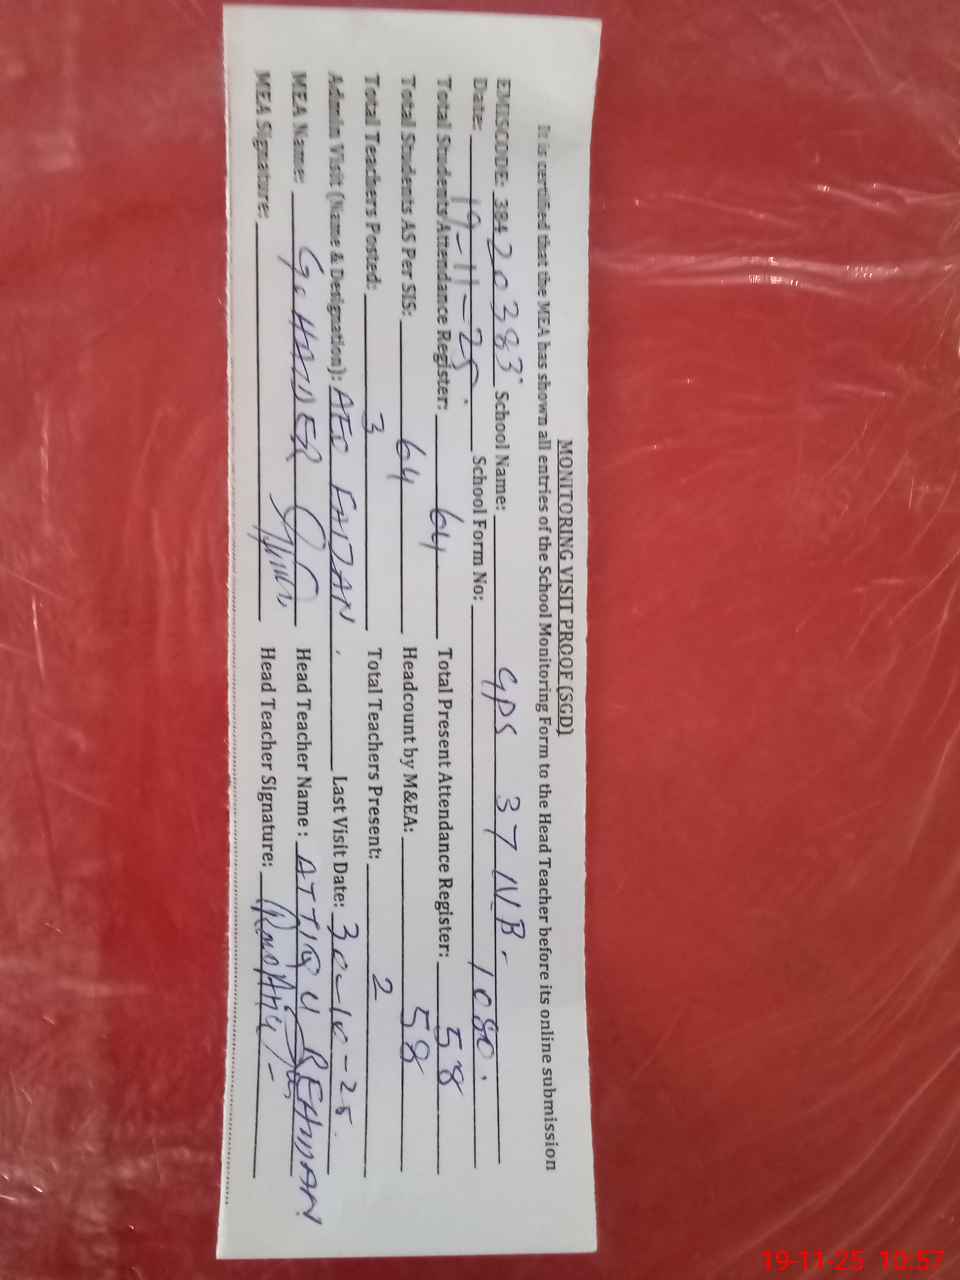 MONITORING VISIT PROOF (SGD)
It is certified that the MEA has shown all entries of the School Monitoring Form to the Head Teacher before its online submission
EMISCODE: 38420383 School Name: GPS 37 NB.
Date: 19-11-25. School Form No: 1080.
Total Students Attendance Register: 64 Total Present Attendance Register: 58
Total Students AS Per SIS: 64 Headcount by M&EA: 58
Total Teachers Posted: 3 Total Teachers Present: 2
Admin Visit (Name & Designation): AEO Last Visit Date: 30-10-25.
MEA Name: Head Teacher Name: ATTIQ U REHMAN
MEA Signature: Head Teacher Signature:
19-11-25 10:57